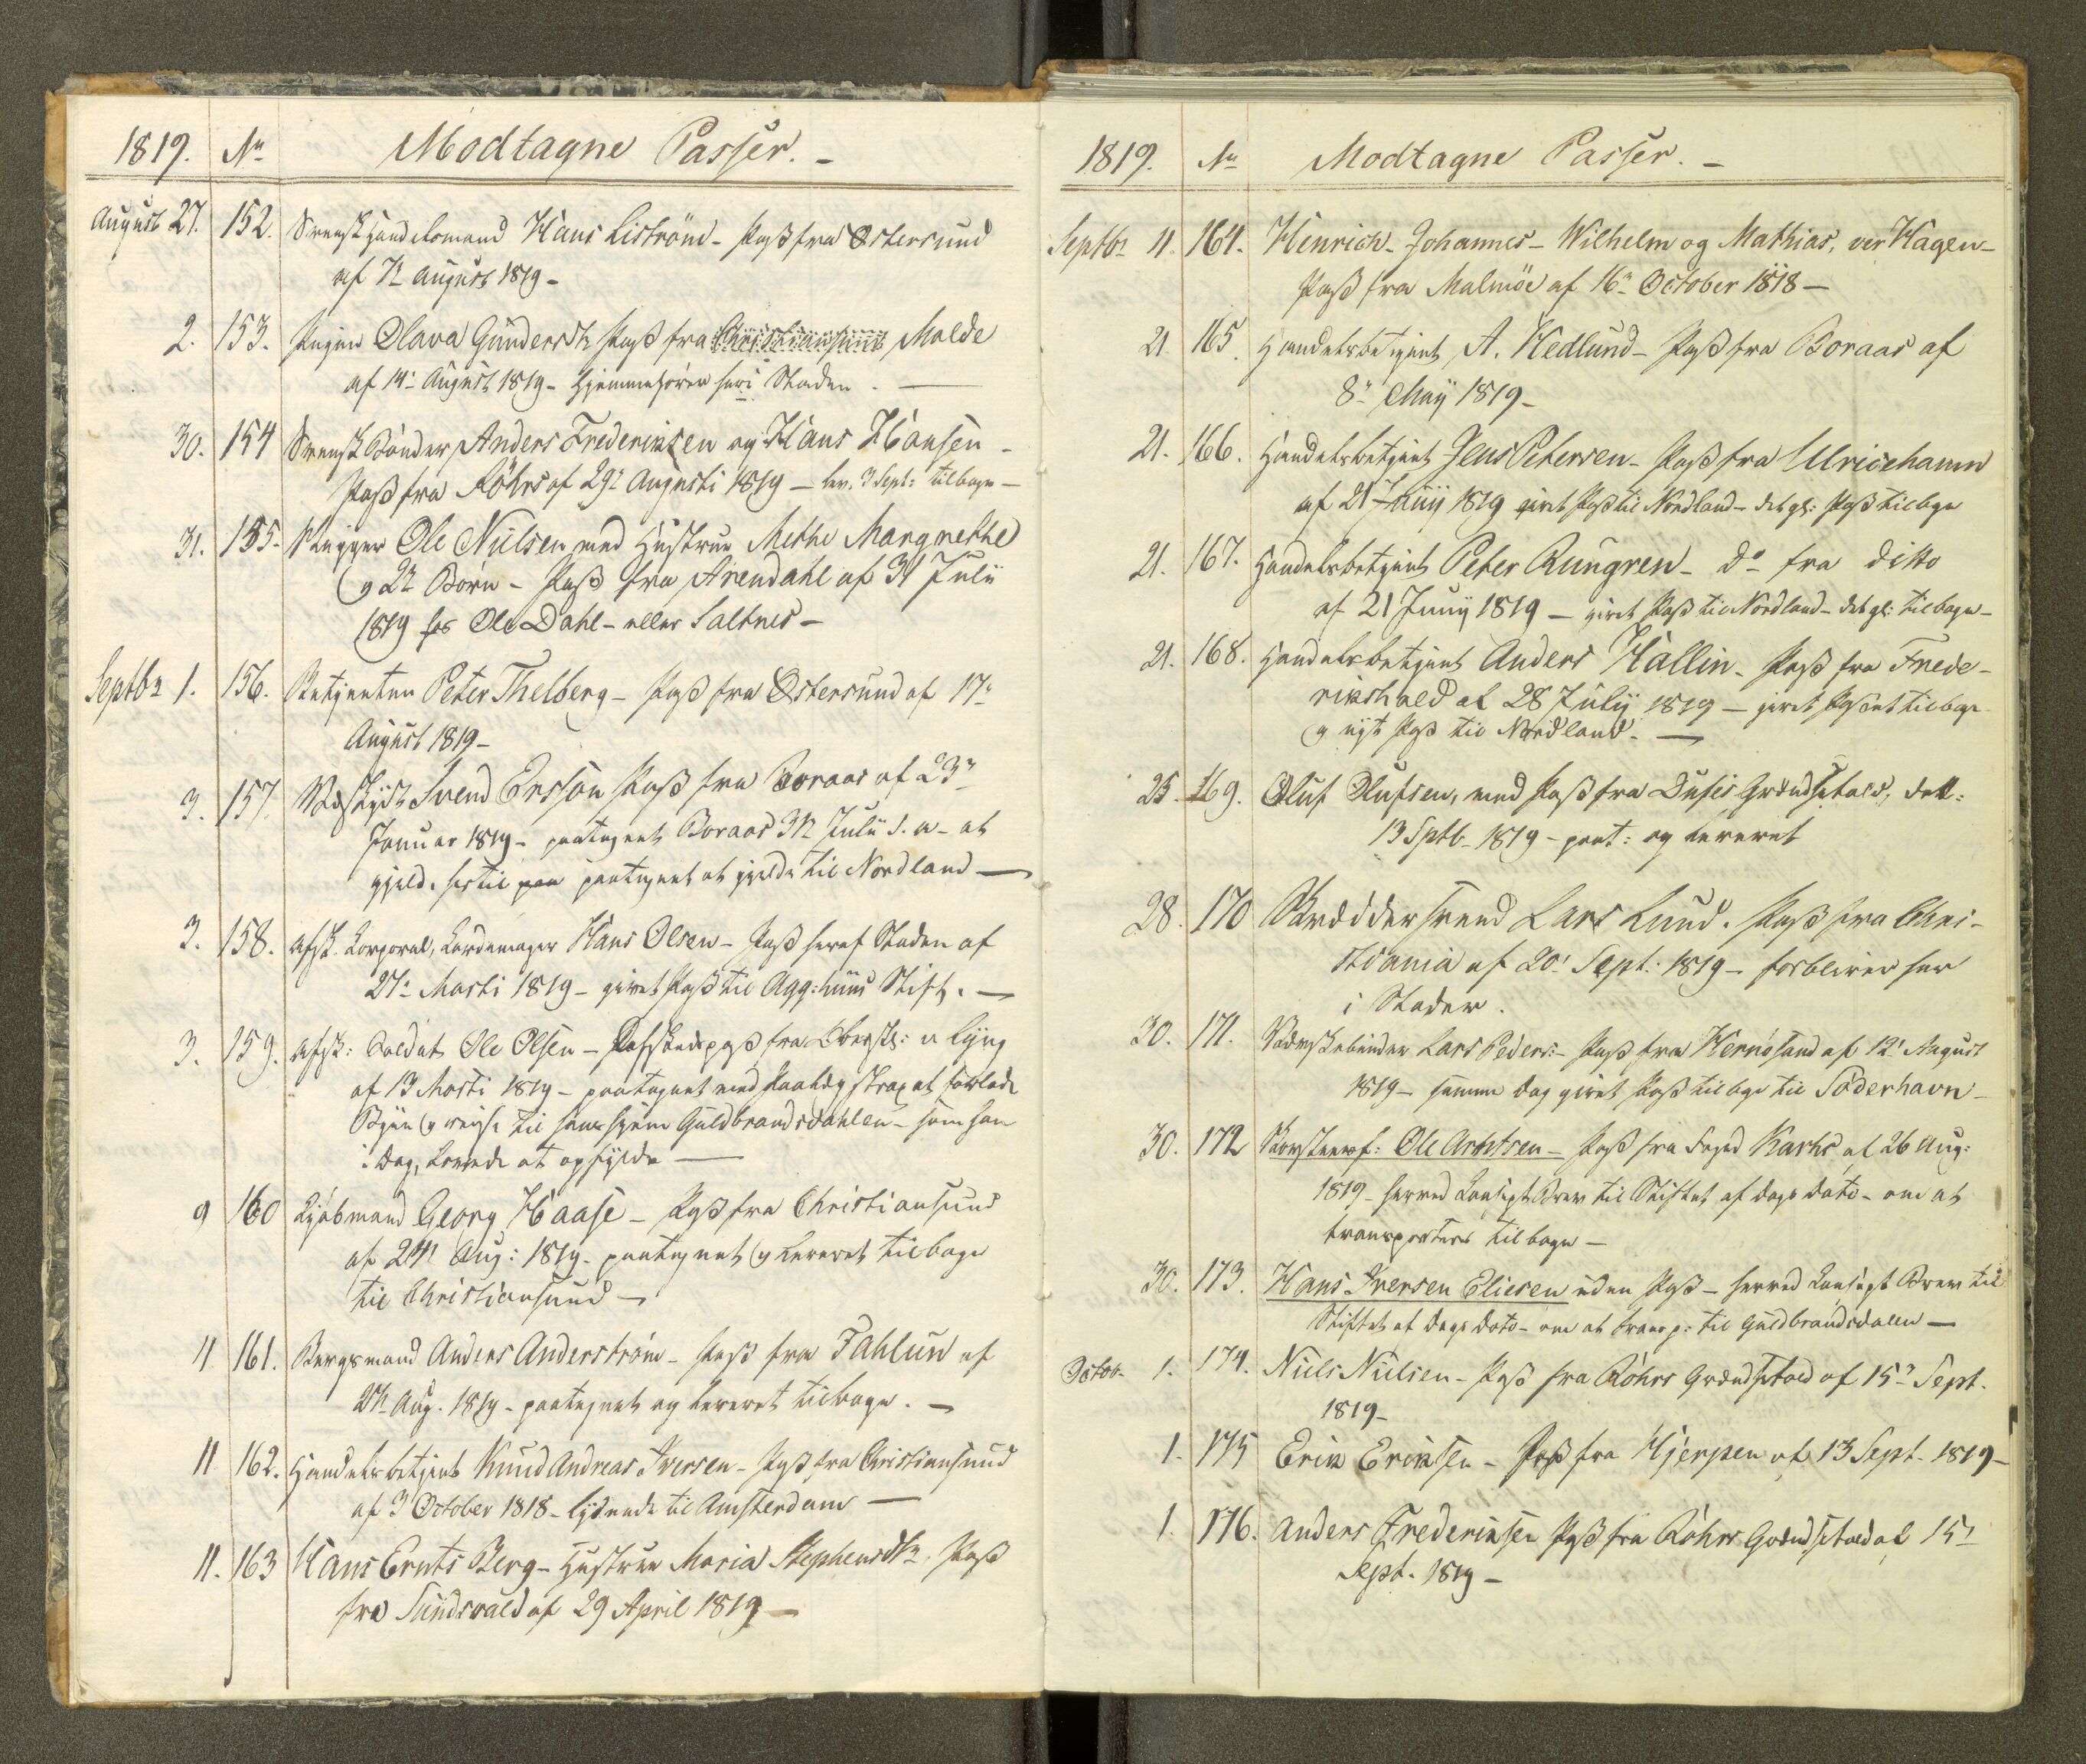 1819. No Modtagne Passer. -
August 27. 152. Svensk Handelsmand Hans Liström - Pass fra Østersund
af 7de August 1819 -
2. 153. Pigen Olava Gundersdr Pass fra Christiansund Molde
af 14de August 1819 - Hjemmehører her i Staden. -
30. 154 Svensk Bönder Anders Frederiksen og Hans Hansen -
Pass fra Röhrs af 29de Augusti 1819 - lev. 3 Sept: tilbage -
31. 155. Skipper Ole Nielsen med Hustrue Methe Margrethe
og 2de Børn - Pass fra Arendahl af 31 Julii
1819 hos Ole Dahl - eller Saltnes -
Septbr 1. 156. Betjenten Peter Thelberg - Pass fra Østersund af 17de
August 1819 -
3. 157. Svend Ersson Pass fra Boraas af 23de
Januar 1819 - paategnet Boraas Julii s. a. at
gjelde hertil paa paategnet at gjelde til Nordland -
3. 158. Afsk. Korporal, Hans Olsen - Pass heraf Staden af
27de Marti 1819 - givet Pass til Agg:huus Stift. -
3. 159. Afsk: Soldat Ole Olsen - Afskedspass fra Oberstl: v Lyng
af 13 Marti 1819 - paategnet med Paalæg strax at forlade
Byen og reise til hans Hjem Guldbrandsdahlen - som han
i Dag, lovede at opfylde -
9 160 Kjøbmand Georg Haase - Pass fra Christiansund
af 24de Aug: 1819 - paategnet og leveret tilbage
til Christiansund -
11 161. Bergsmand Anders Anderström - Pass fra Fahlun af
Aug. 1819 - paategnet og leveret tilbage. -
11 162. Handelsbetjent Knud Andreas Iversen - Pass fra Christiansund
af 3 October 1818 - lydende til Amsterdam -
11. 163 Hans Ernts Berg - Hustrue Maria Stephensdtr, Pass
fra Sundsvald af 29 April 1819 -
1819. No Modtagne Passer. -
Septbr 11. 164. Henrich - Johannes - Wilhelm og Mathias, ver Hagen -
Pass fra Malmöe af 16de October 1818 -
21. 165. Handelsbetjent A. Hedlund - Pass fra Boraas af
8de Maij 1819 -
21. 166. Handelsbetjent Jens Petersen - Pass fra Ulricehamn
af 21 Junij 1819 givet Pass til Nordland - det gl: Pass tilbage
21. 167. Handelsbetjent Peter Rungren - do fra ditto
af 21 Junij 1819 - givet Pass til Nordland - det gl: tilbage -
21. 168. Handelsbetjent Anders Hallin - Pass fra Frede-
rikshald af 28 Julij 1819 - givet Passet tilbage
og nyt Pass til Nordland. -
25. 169. Oluf Olufsen, med Pass fra Dufes Grændsetold, dat:
13 Sptb. 1819 - paat: og leveret
28. 170 Skrædder svend Lars Lund. Pass fra Chri-
stiania af 20de Sept: 1819 - forbliver her
i Staden.
30. 171. Lars Peders: - Pass fra Hernösand af 12te August
1819 - samme Dag givet Pass tilbage til Söderhavn -
30. 172 Ole Arntsen - Pass fra Foged Karhs af 26 Aug:
1819 - herved Konsept Brev til Stiftet af Dags Dato - om at
transporteres tilbage -
30. 173. Hans Iversen Eliesen uden Pass - herved Konsept Brev til
Stiftet af Dags Dato - om at transp: til Guldbrandsdalen -
Octobr. 1. 174. Niels Nielsen - Pass fra Röhrs Grændsetold af 15de Sept.
1819 -
1. 175 Erik Eriksen - Pass fra Hjerpen af 13 Sept. 1819 -
1. 176. Anders Frederiksen Pass fra Röhrs Grændsetold af 15de
Sept. 1819 -